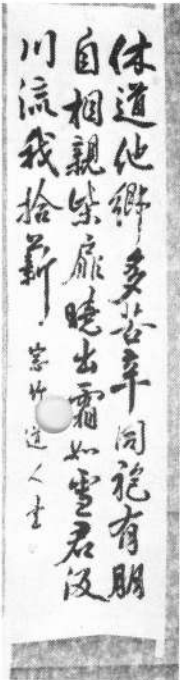 休道他鄉多苦辛同袍有朋
自相親柴扉曉出霜如雪君汲
川流我拾薪
竹道人書